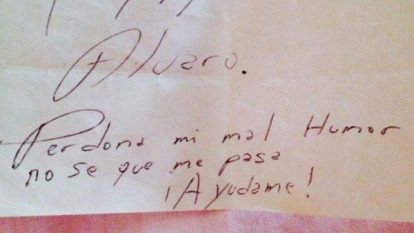 Alvaro.
Perdona mi mal Humor
no se que me pasa
¡Ayudame!